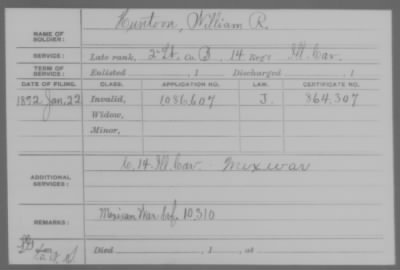 NAME OF SOLDIER: Huntoon, William R.
SERVICE: Late rank, 2 Lt. Co. B, 14 Reg't Ill. Cav.
TERM OF SERVICE: Enlisted , 1 Discharged , 1
DATE OF FILING. CLASS. APPLICATION NO. LAW. CERTIFICATE NO.
1892 Jan. 22 Invalid, 1086.607 J. 864.307
Widow,
Minor,
ADDITIONAL SERVICES: C. 14. Ill. Cav. Mex war
REMARKS: Mexican War Ctf. 10,310
Died , 1 , at